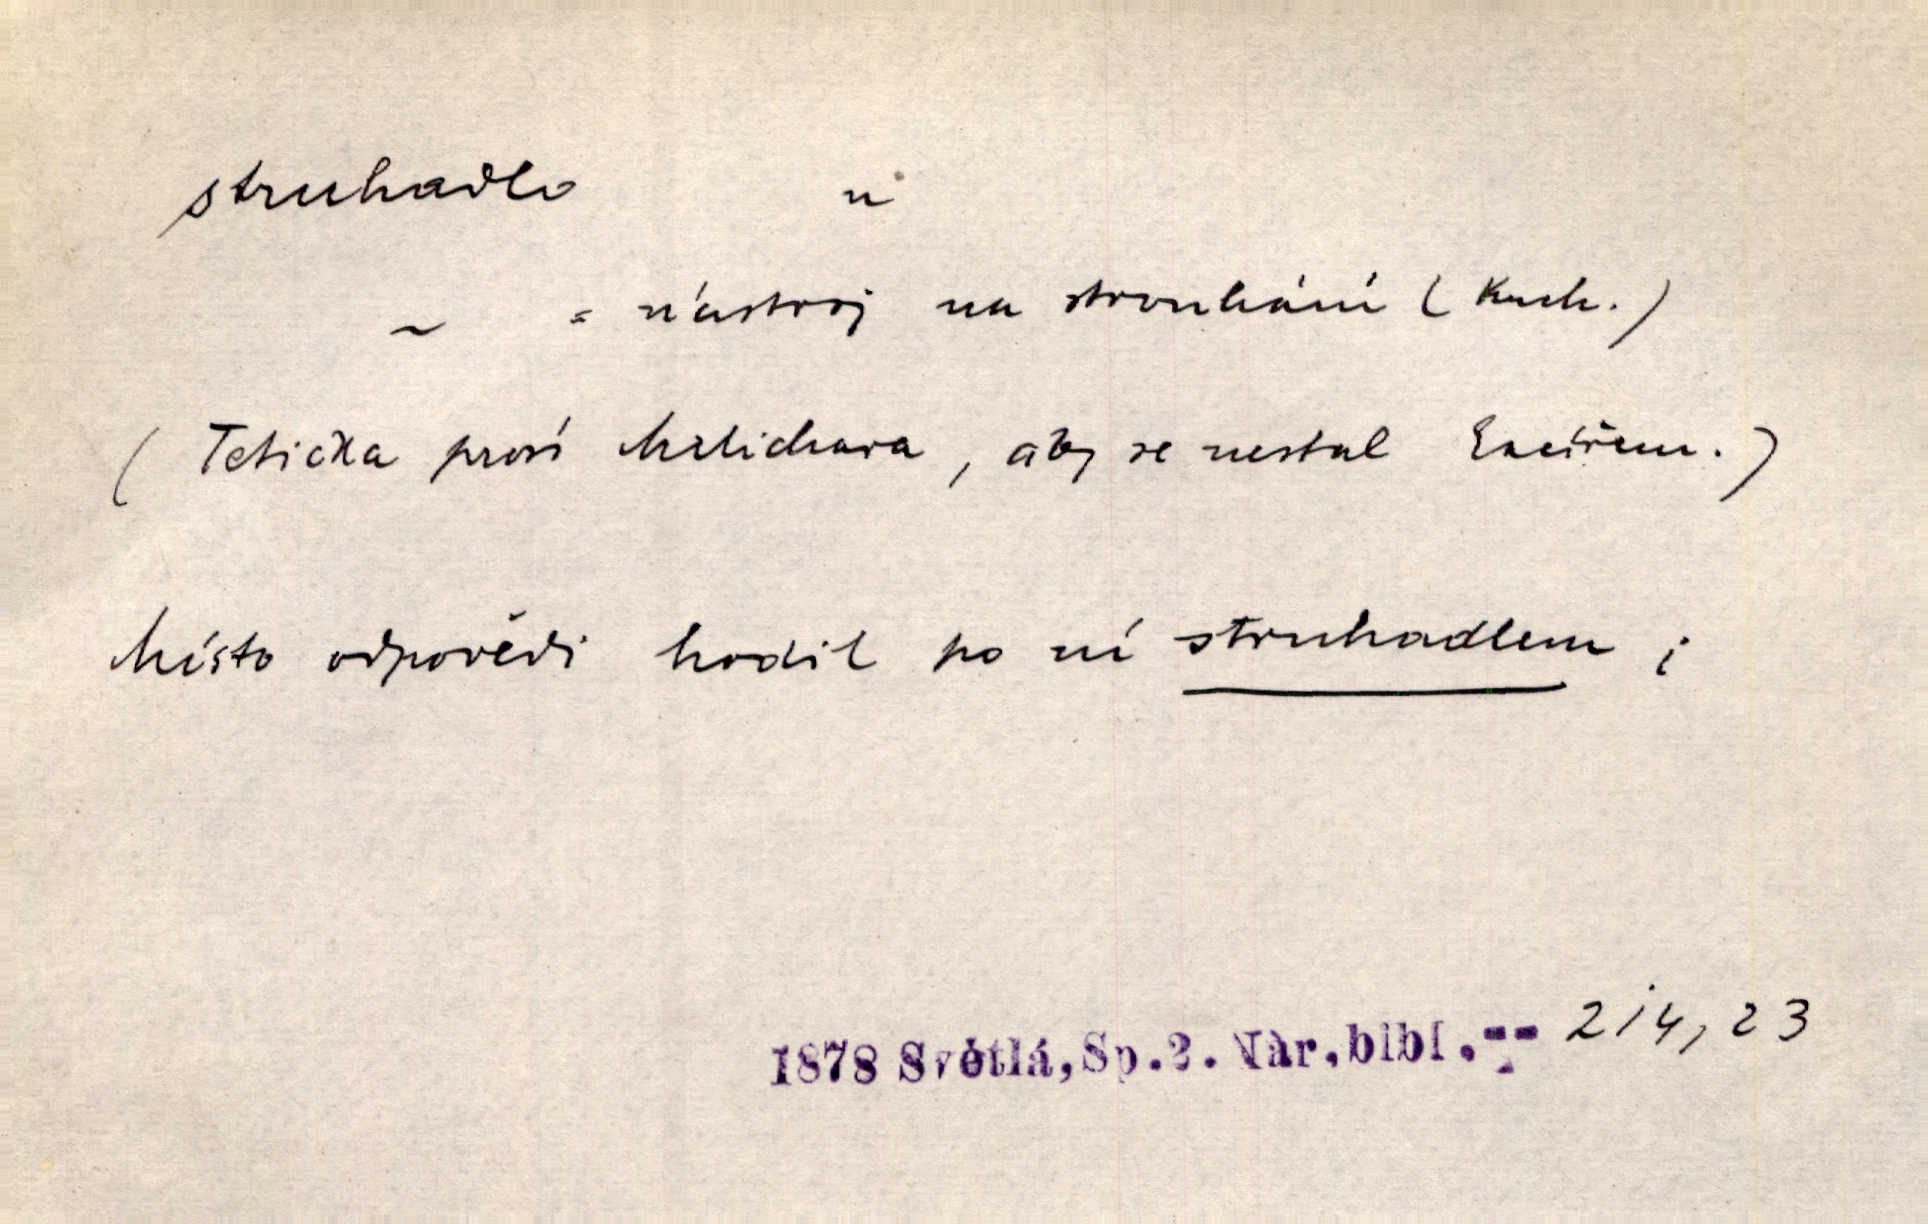 struhadlo n
~ = nástroj na strouhání (kuch.)
(Tetička prosí Melichara, aby se nestal
Místo odpovědi hodil po ní struhadlem ;
1878 Světlá, Sp.2. Nár.bibl. -- 214, 23